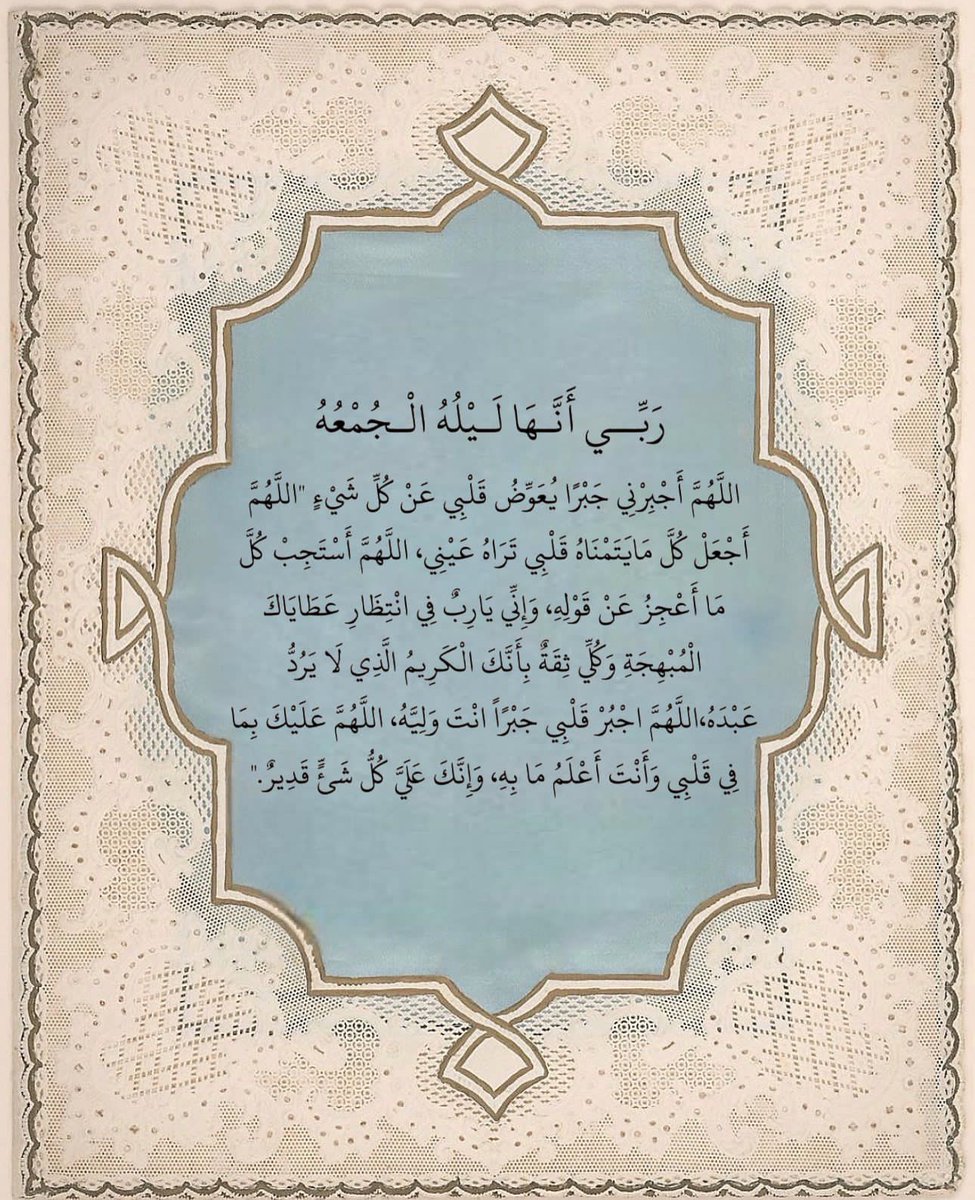 رَبِّـــي أَنَّــهَا لَــيْلُهُ الْــجُمْعُهُ
اللَّهُمَّ أَجْبِرْنِي جَبْرًا يُعَوِّضُ قَلْبِي عَنْ كُلِّ شَيْءٍ "اللَّهُمَّ
أَجْعَلْ كُلَّ مَايَتَمْنَاهُ قَلْبِي تَرَاهُ عَيْنِي، اللَّهُمَّ أَسْتَجِبْ كُلَّ
مَا أَعْجِزُ عَنْ قَوْلِهِ، وَإِنِّي يَارِبٌ فِي انْتِظَارِ عَطَايَاكَ
الْمُبْهِجَةِ وَكُلِّي ثِقَةٌ بِأَنَّكَ الْكَرِيمُ الَّذِي لَا يَرُدُّ
عَبْدَهُ،اللَّهُمَّ اجْبُرْ قَلْبِي جَبْرَاً انْتَ وَلِيَّهُ، اللَّهُمَّ عَلَيْكَ بِمَا
فِي قَلْبِي وَأَنْتَ أَعْلَمُ مَا بِهِ، وَإِنَّكَ عَلَيَّ كُلُّ شَئٍّ قَدِيرٌ."